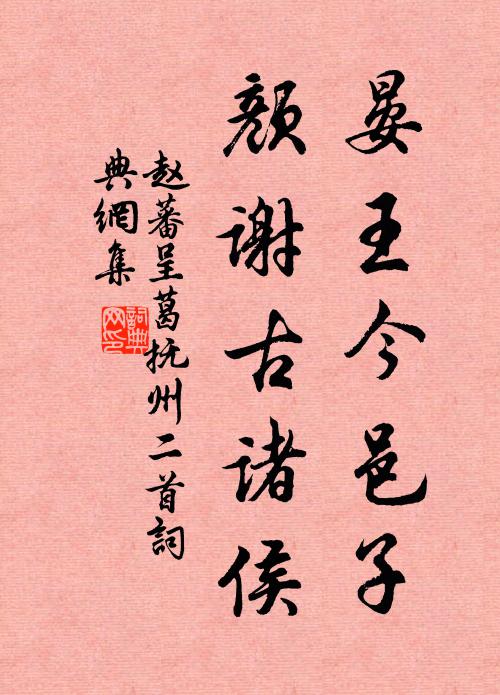 晏王今邑子
颜谢古诸侯
赵蕃呈葛抚州二首词
典網集
詞典網印